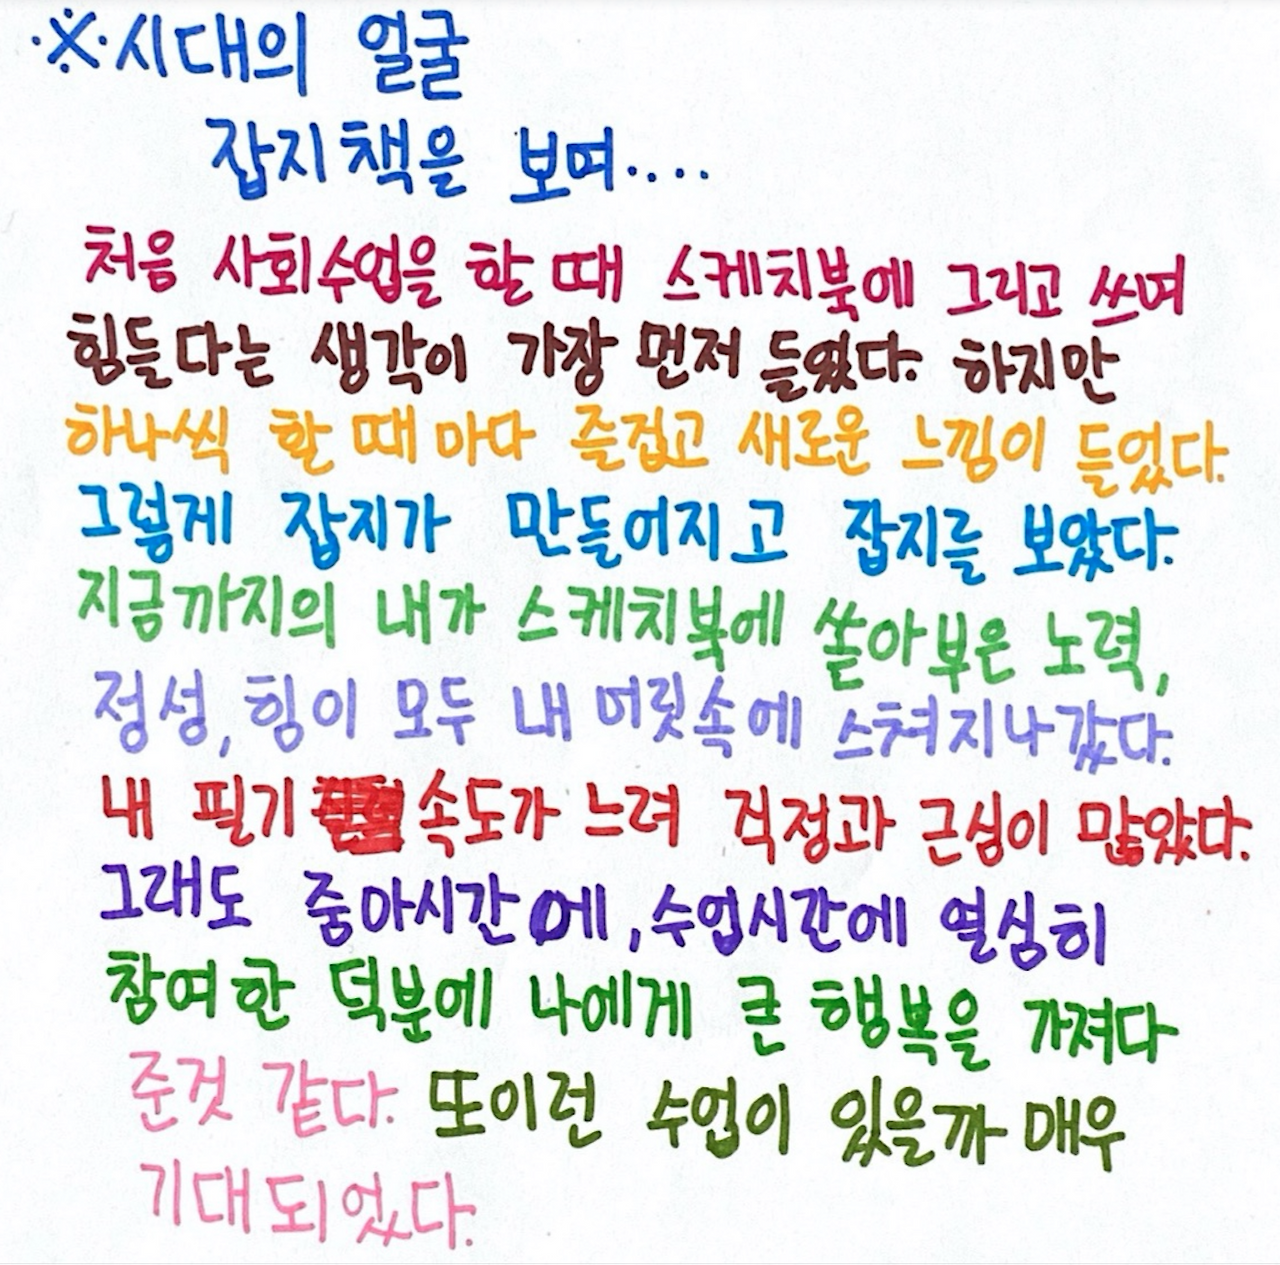 ※시대의 얼굴
잡지책을 보며....
처음 사회수업을 할 때 스케치북에 그리고 쓰며
힘들다는 생각이 가장 먼저 들었다. 하지만
하나씩 할 때 마다 즐겁고 새로운 느낌이 들었다.
그렇게 잡지가 만들어지고 잡지를 보았다.
지금까지의 내가 스케치북에 쏟아부은 노력,
정성, 힘이 모두 내 머릿속에 스쳐지나갔다.
내 필기 속도가 느려 걱정과 근심이 많았다.
그래도 중아시간에, 수업시간에 열심히
참여한 덕분에 나에게 큰 행복을 가져다
준것 같다. 또이런 수업이 있을까 매우
기대되었다.